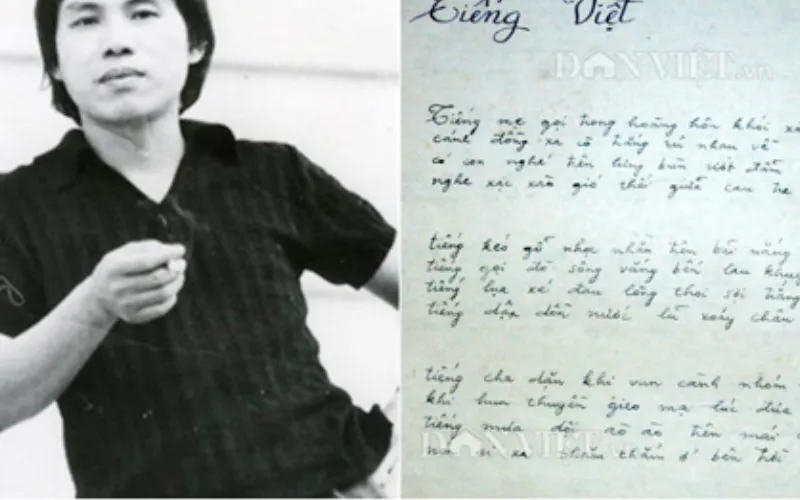 Tiếng Việt
DÂN VIỆT.vn
Tiếng mẹ gọi trong hoàng hôn khói
cánh đồng xa cò trắng rủ nhau về
có con nghé trên lưng bùn ướt đẫm
nghe xạc xào gió thổi giữa cau tre
tiếng kéo gỗ nhọc nhằn trên bãi nắng
tiếng gọi đò sông vắng bến lau
tiếng lụa xé đau lòng thoi sợi trắng
tiếng dập dồn nước lũ xoáy chân
tiếng cha dặn khi vun cành nhóm
khi hun thuyền gieo mạ lúc đưa
tiếng mưa dội ào ào trên mái
DÂN VIỆT.vn
xa thăm thẳm ở bên trời